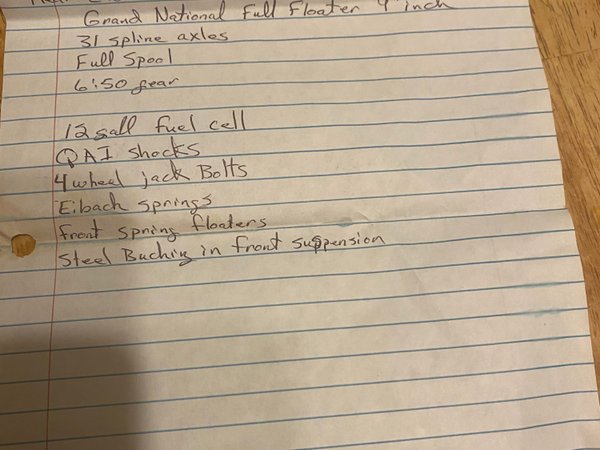 Grand National Full Floater 9" inch
31 spline axles
Full Spool
6:50 gear
12 gall fuel cell
QAI shocks
4 wheel jack Bolts
Eibach springs
front spring floaters
Steel Buching in front suspension